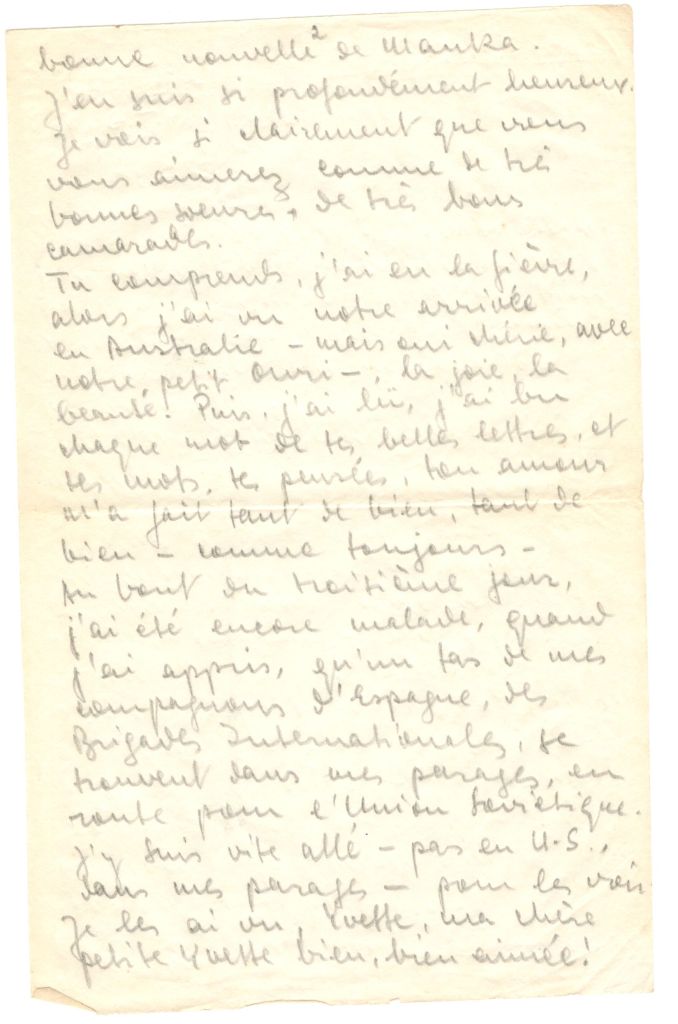 2
bonne nouvelle de Manka.
J'en suis si profondément heureux.
Je vois si clairement que vous
vous aimerez comme de très
bonnes soeures, de très bons
camarades.
Tu comprends, j'ai eu la fièvre,
alors j'ai vu notre arrivée
en Australie – mais oui chérie, avec
notre petit Ouri –, la joie, la
beauté! Puis, j'ai lu, j'ai bu
chaque mot de tes belles lettres, et
tes mots, tes pensées, ton amour
m'a fait tant de bien, tant de
bien – comme toujours –
Au bout du troisième jour,
j'ai été encore malade, quand
j'ai appris, qu'un tas de mes
compagnons d'Espagne, des
Brigades Internationales, se
trouvent dans mes parages, en
route pour l'Union Soviétique.
J'y suis vite allé – pas en U.S.,
dans mes parages – pour les voir.
Je les ai vu, Yvette, ma chère
petite Yvette bien, bien aimée!